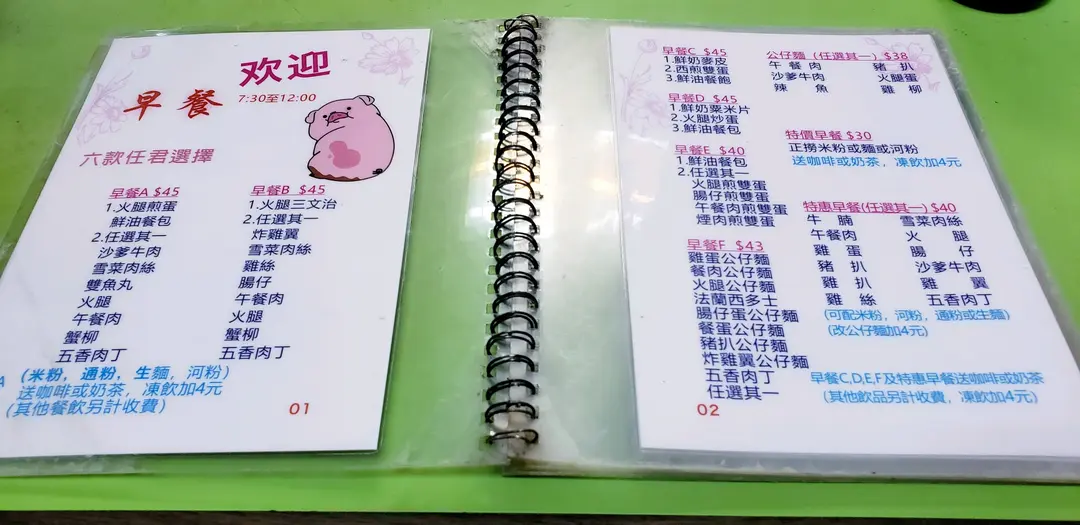 欢迎
早餐
7:30至12:00
六款任君選擇
早餐A $45
1.火腿煎蛋
鮮油餐包
2.任選其一
沙爹牛肉
雪菜肉絲
雙魚丸
火腿
午餐肉
蟹柳
五香肉丁
早餐B $45
1.火腿三文治
2.任選其一
炸雞翼
雪菜肉絲
雞絲
腸仔
午餐肉
火腿
蟹柳
五香肉丁
A (米粉，通粉，生麵，河粉)
送咖啡或奶茶，凍飲加4元
(其他餐飲另計收費)
01
早餐C $45
1.鮮奶麥皮
2.西煎雙蛋
3.鮮油餐飽
早餐D $45
1.鮮奶粟米片
2.火腿炒蛋
3.鮮油餐包
早餐E $40
1.鮮油餐包
2.任選其一
火腿煎雙蛋
腸仔煎雙蛋
午餐肉煎雙蛋
煙肉煎雙蛋
早餐F $43
雞蛋公仔麵
餐肉公仔麵
火腿公仔麵
法蘭西多士
腸仔蛋公仔麵
餐蛋公仔麵
豬扒公仔麵
炸雞翼公仔麵
五香肉丁
任選其一
02
公仔麵（任選其一）$38
午餐肉 豬扒
沙爹牛肉 火腿蛋
辣魚 雞柳
特價早餐 $30
正撈米粉或麵或河粉
送咖啡或奶茶，凍飲加4元
特惠早餐(任選其一) $40
牛腩 雪菜肉絲
午餐肉 火腿
雞蛋 腸仔
豬扒 沙爹牛肉
雞扒 雞翼
雞絲 五香肉丁
(可配米粉，河粉，通粉或生麵)
(改公仔麵加4元)
早餐C,D,E,F及特惠早餐送咖啡或奶茶
(其他飲品另計收費，凍飲加4元)